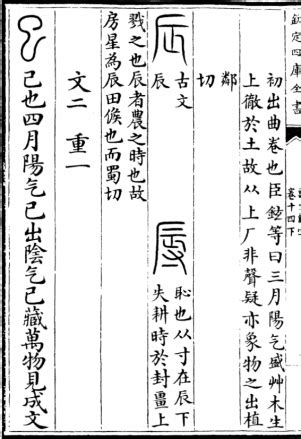 欽定四庫全書
卷十四下
初出曲卷也臣鉉等曰三月陽气盛艸木生
上徹於土故从上厂非聲疑亦象物之出植
鄰
切
辰 古文
辰
辱 恥也从寸在辰下
失耕時於封畺上
戮之也辰者農之時也故
房星為辰田候也而蜀切
文二 重一
巳 巳也四月陽气巳出陰气巳藏萬物見成文